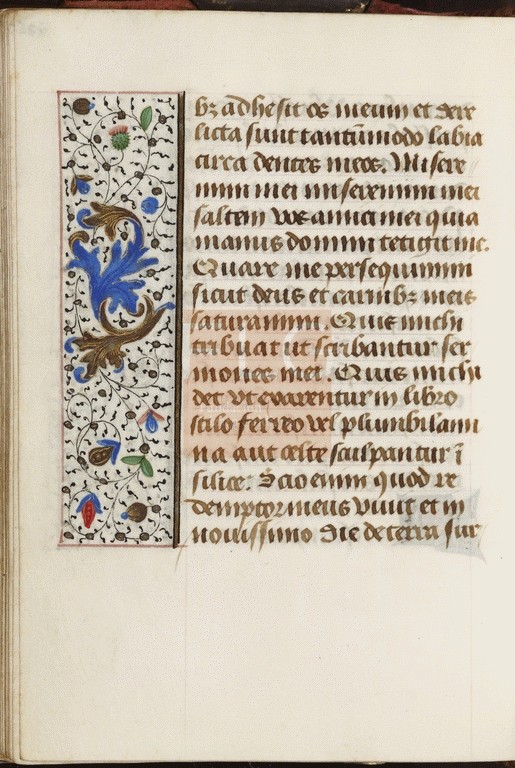 bꝫ adhesit os meum et dere
licta sunt tantūmodo labia
circa dentes meos. Misere
mini mei miseremini mei
saltem vos amici mei quia
manus domini tetigit me.
Quare me persequimini
sicut deus et carnibꝫ meis
saturamini. Quis michi
tribuat ut scribantur ser
mones mei. Quis michi
det vt exarentur in libro
stilo ferreo vel plumbi lami
na aut celte sculpantur ī
silice. Scio enim quod re
demptor meus viuit et in
nouissimo die de terra sur